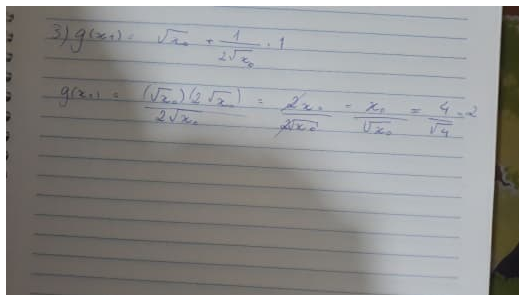 3) g(x₁) = √x₀ + 1/(2√x₀) · 1
g(x₁) = (√x₀)(2√x₀)/(2√x₀) = 2x₀/(2√x₀) = x₀/√x₀ = 4/√4 = 2